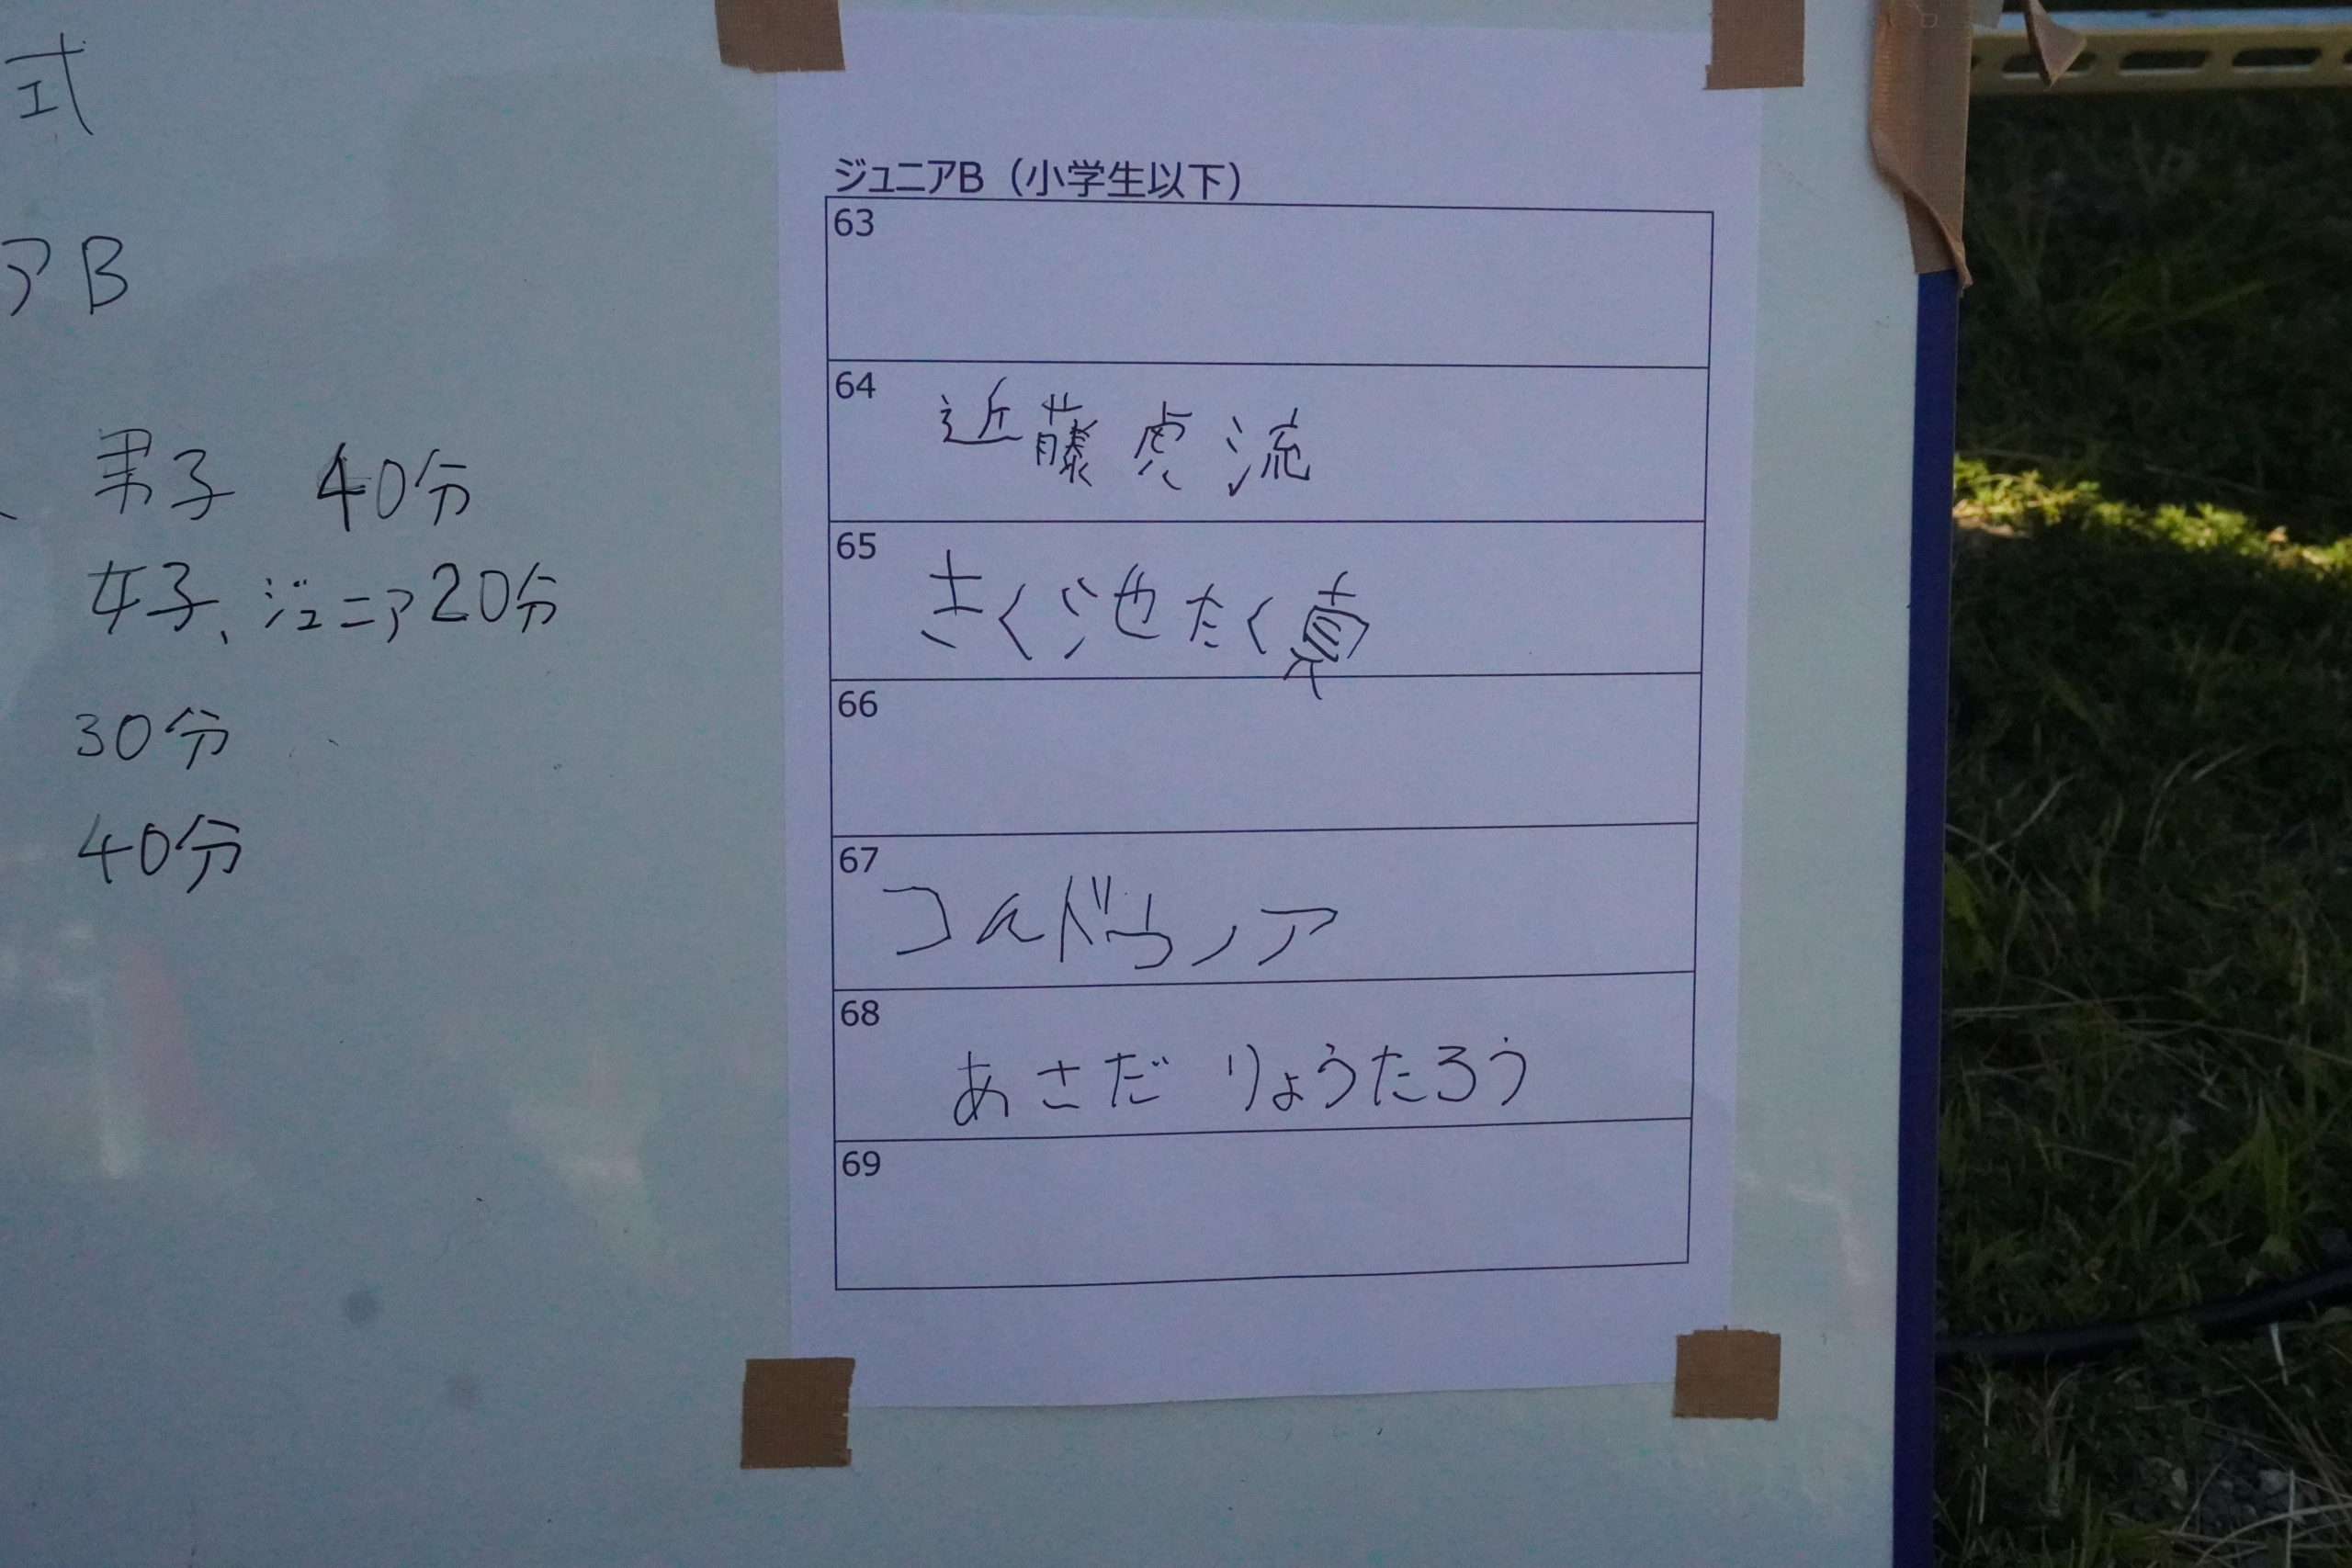 式
アB
男子 40分
女子、ジュニア20分
30分
40分
ジュニアB（小学生以下）
63
64 近藤虎流
65 きくち池たく真
66
67
68 あさだ りょうたろう
69